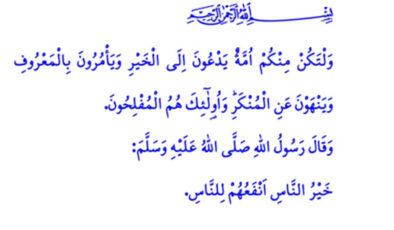 بِسْمِ اللهِ الرَّحْمٰنِ الرَّحِيمِ
وَلْتَكُنْ مِنْكُمْ اُمَّةٌ يَدْعُونَ اِلَى الْخَيْرِ وَيَأْمُرُونَ بِالْمَعْرُوفِ
وَيَنْهَوْنَ عَنِ الْمُنْكَرِۜ وَاُو۬لٰٓئِكَ هُمُ الْمُفْلِحُونَ.
وَقَالَ رَسُولُ اللهِ صَلَّى اللهُ عَلَيْهِ وَسَلَّمَ:
خَيْرُ النَّاسِ اَنْفَعُهُمْ لِلنَّاسِ.